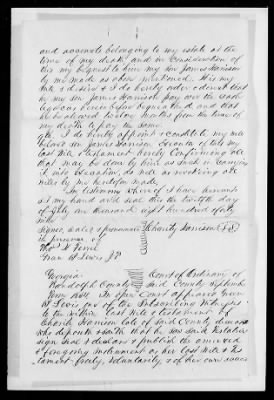 and accounts belonging to my estate at the
time of my death and in consideration of
this my bequest to him my son James Harrison
by me made as above mentioned. It is my
will & desire & I do hereby order & direct that
he my son James Harrison pay over the cash
legacies herein before bequeathed and that
he be allowed twelve months from the time of
my death to pay the same
I do hereby appoint & constitute my well
beloved son James Harrison Executor of this my
last will & testament hereby Confirming all
that may be done by him as such in carrying
it into execution, as well as revoking all
wills by me heretofore made
In testimony whereof I have hereunto
set my hand and seal this the twelfth day
of July one thousand eight hundred & fifty
Signed, sealed & presence Charity Harrison
in presence of
Thos. W.
W Lewis J.P.
Georgia Court of Ordinary of
Randolph County Said County September
Term In open Court appeared
W Lewis one of the Subscribing Witnesses
to the within last will & testament of
Charity Harrison late of said County deceased
who deposeth and saith that he saw said Testator
sign seal & declare & publish the annexed
& foregoing instrument as her last Will & Tes
tament freely, voluntarily & of her own accord